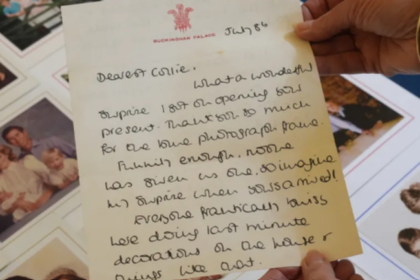 BUCKINGHAM PALACE
July 84
Dearest Collie,
What a wonderful
surprise I got on opening your
present. Thank you so much
for the lovely photograph frame.
Funnily enough, no one
has given us one, so imagine
my surprise when yours arrived!
Everyone frantically busy
here doing last minute
decorations on the house &
things like that.